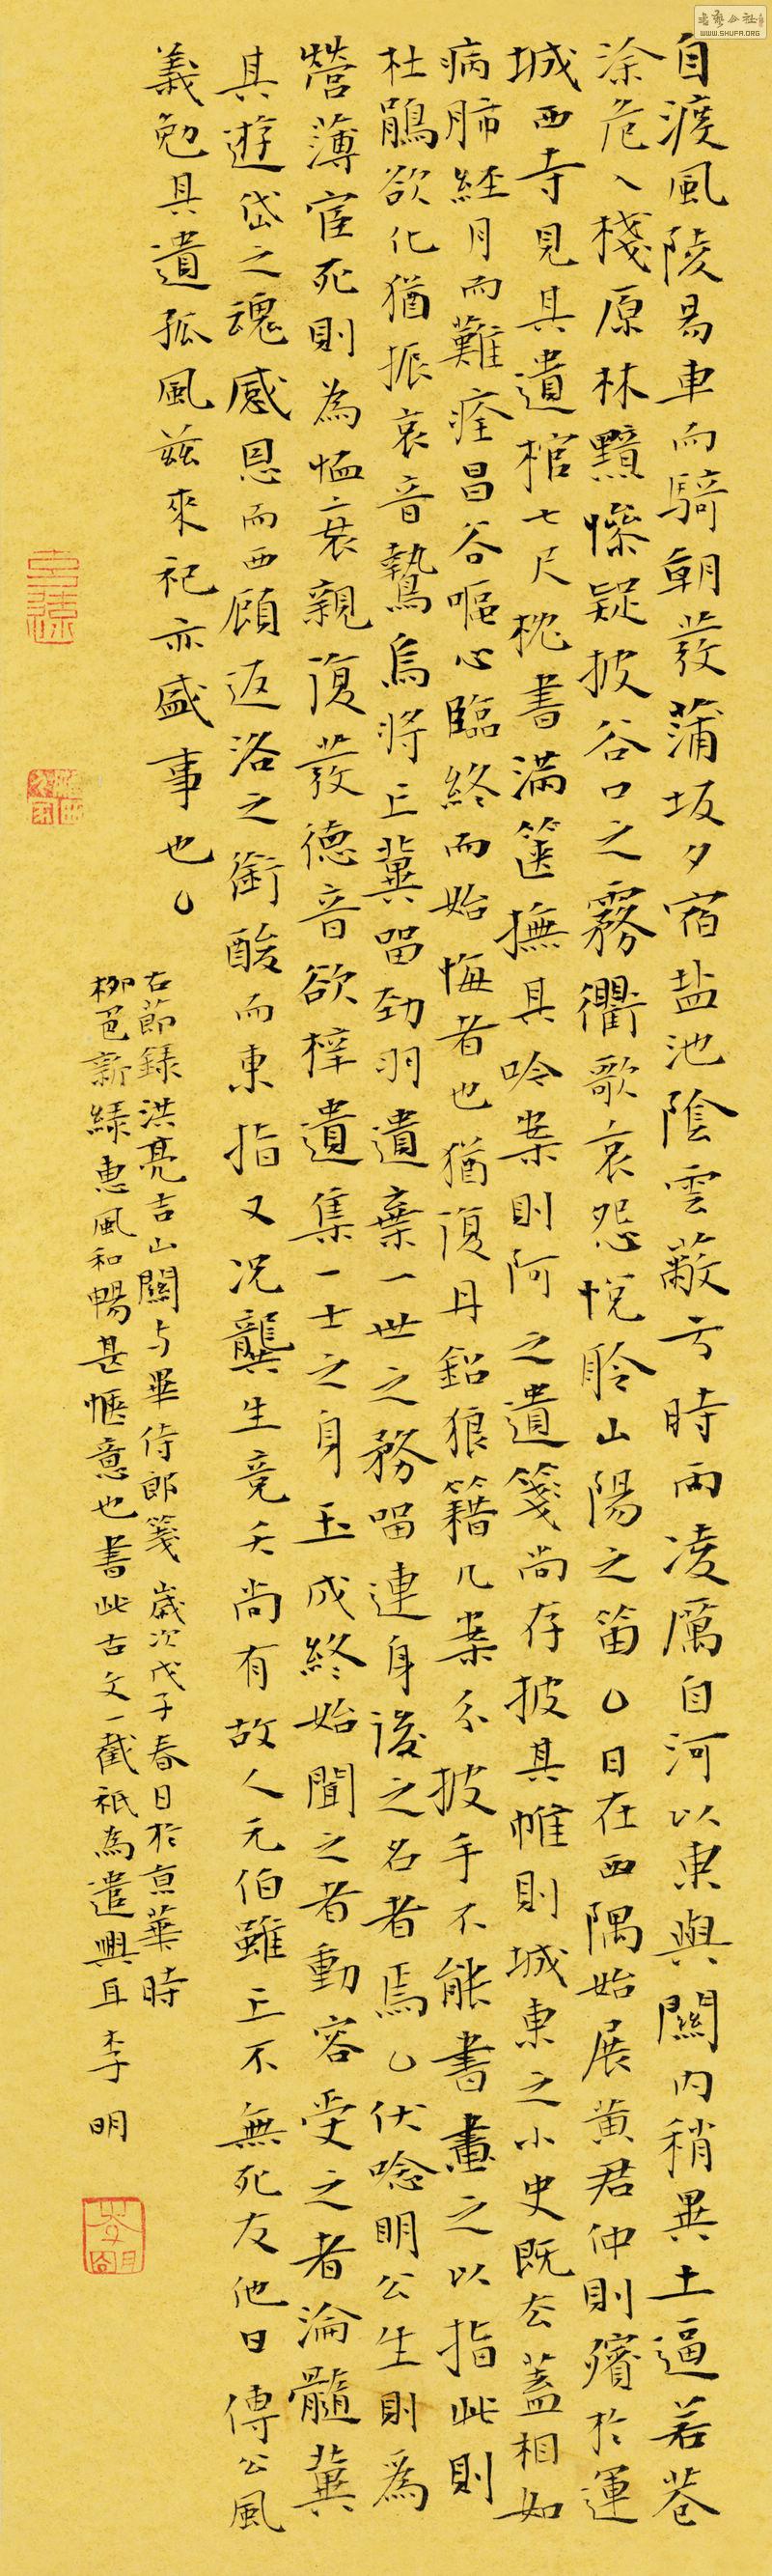 自渡風陵易車而騎朝發蒲坂夕宿盐池陰雲蔽亏時雨凌厲自河以東與關内稍異土逼若巷
涂危入棧原林黯慘疑披谷口之霧衢歌哀怨怳聆山陽之笛乚日在西隅始展黄君仲則殯於運
城西寺見其遺棺七尺枕書滿篋撫其吟案則阿之遺箋尚存披其帷則城東之小史既去蓋相如
病肺經月而難痊昌谷嘔心臨終而始悔者也猶復丹鉛狼籍几案紛披手不能書畫之以指此則
杜鵑欲化猶振哀音鷙鳥將亡冀留劲羽遺棄一世之務留連身後之名者焉乚伏唸明公生則爲
營薄宦死則為恤衰親復發德音欲梓遺集一士之身玉成終始聞之者動容受之者淪髓冀
其遊岱之魂感恩而西顧返洛之銜酸而東指又况龔生竟夭尚有故人元伯雖亡不無死友他日傳公風
義勉其遺孤風兹來祀亦盛事也乚
右節録洪亮吉山關与畢侍郎箋 歲次戊子春日於京華時
柳邑新緑惠風和暢甚愜意也書此古文一截祇為遣興耳李明
WWW.SHUFA.ORG